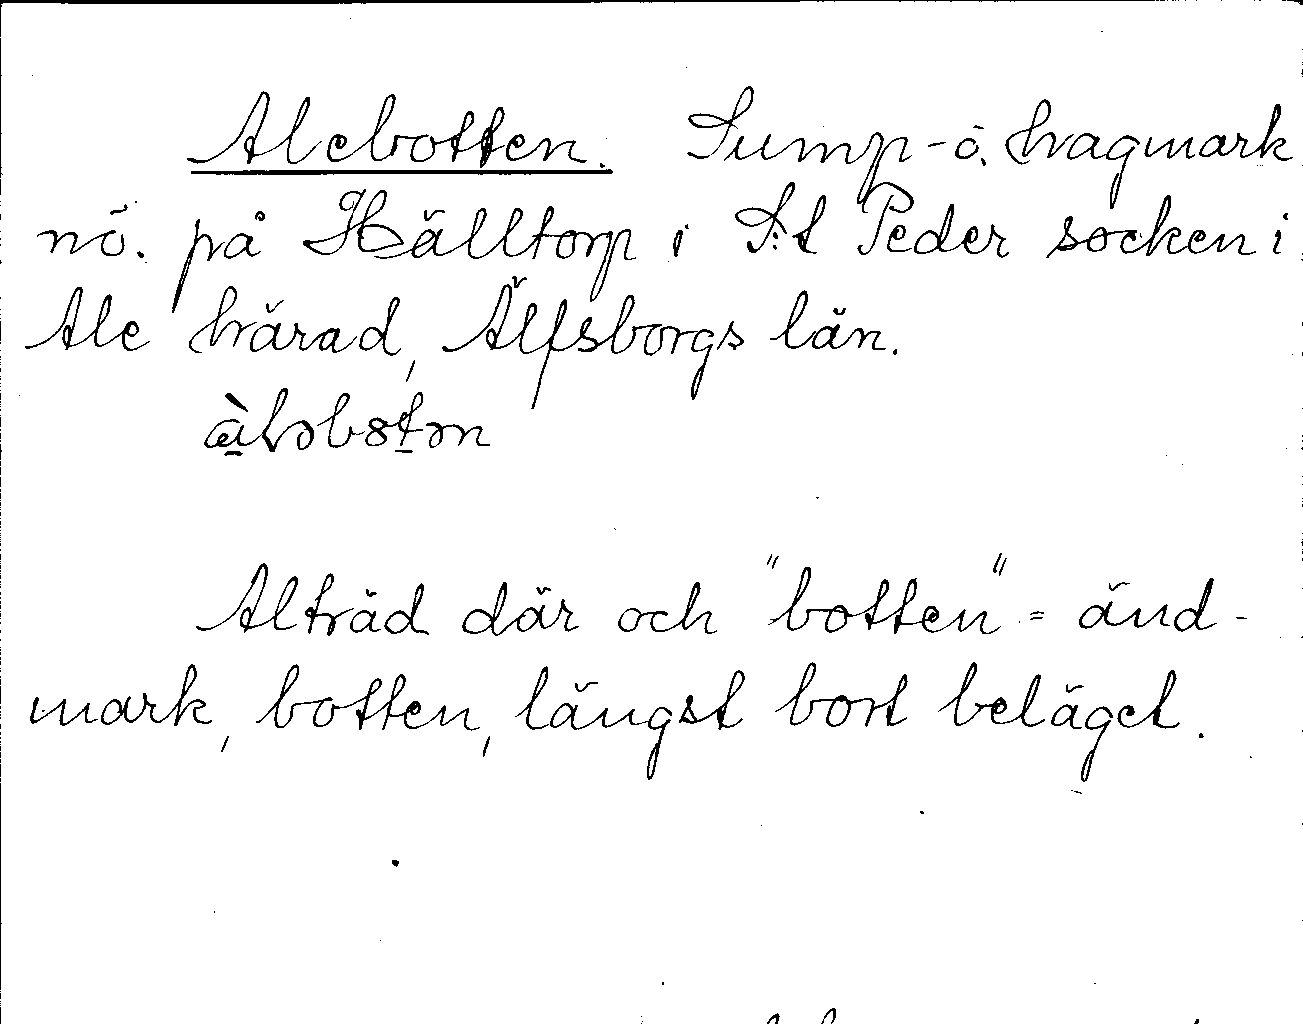 Alebotten. Sump- ö. hagmark
nö. på Hälltorp i S:t Peder socken i
Ale härad, Älfsborgs län.

Alträd där och "botten" = änd-
mark, botten, längst bort beläget.